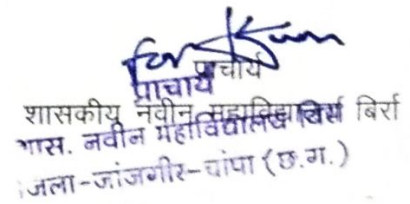 प्राचार्य
प्राचार्य
शासकीय नवीन महाविद्यालय बिर्रा
शास. नवीन महाविद्यालय बिर्रा
जिला-जांजगीर-चांपा (छ.ग.)